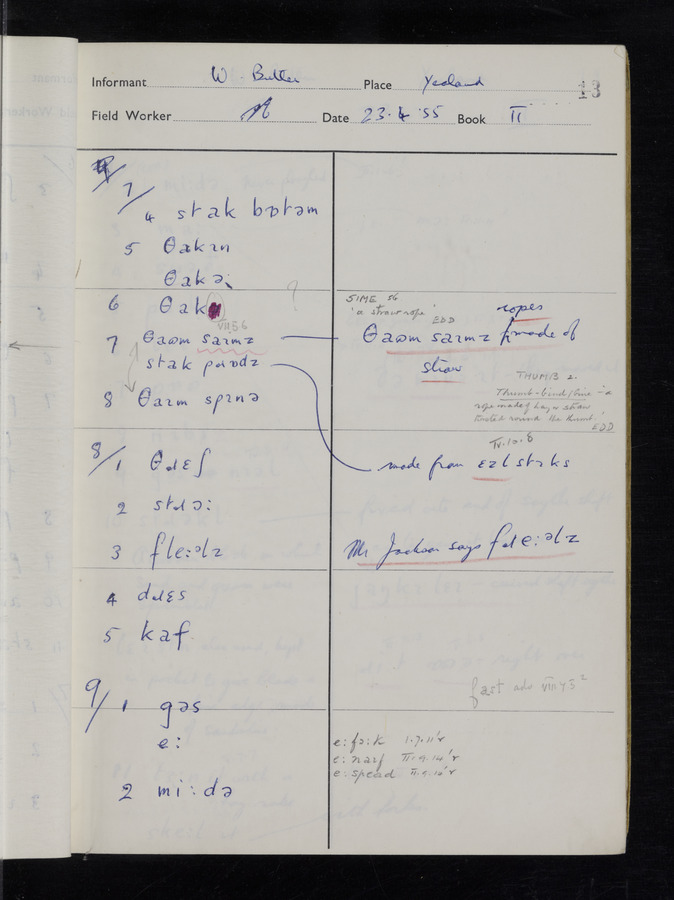 Informant W. Butler Place Yealand 13
Field Worker Date 23.4.'55 Book II
7/
4 stak bɒtəm
5 θakɪn
θakə
6 θak
?
VIII.5.6
SIME s6
'a straw rope' EDD
ropes
7 θaʊm saɪmz θaʊm saɪmz made of
straw
stak
8 θaɪm
THUMB 2.
Thumb-bind/line – a
rope made of hay or straw
twisted round the thumb.
EDD
IV.10.8
8/1 θɹɛʃ made from ɛzl stɪks
2 stɹɔ:
3 fle:əlz Mr Jackson says fɹe:əlz
4 dɹɛs
5 kaf
fast adv VIII.4.5²
9/1 gəs
e: e:fɔ:k I.7.11'r
e:
e:spead
2 mi:də